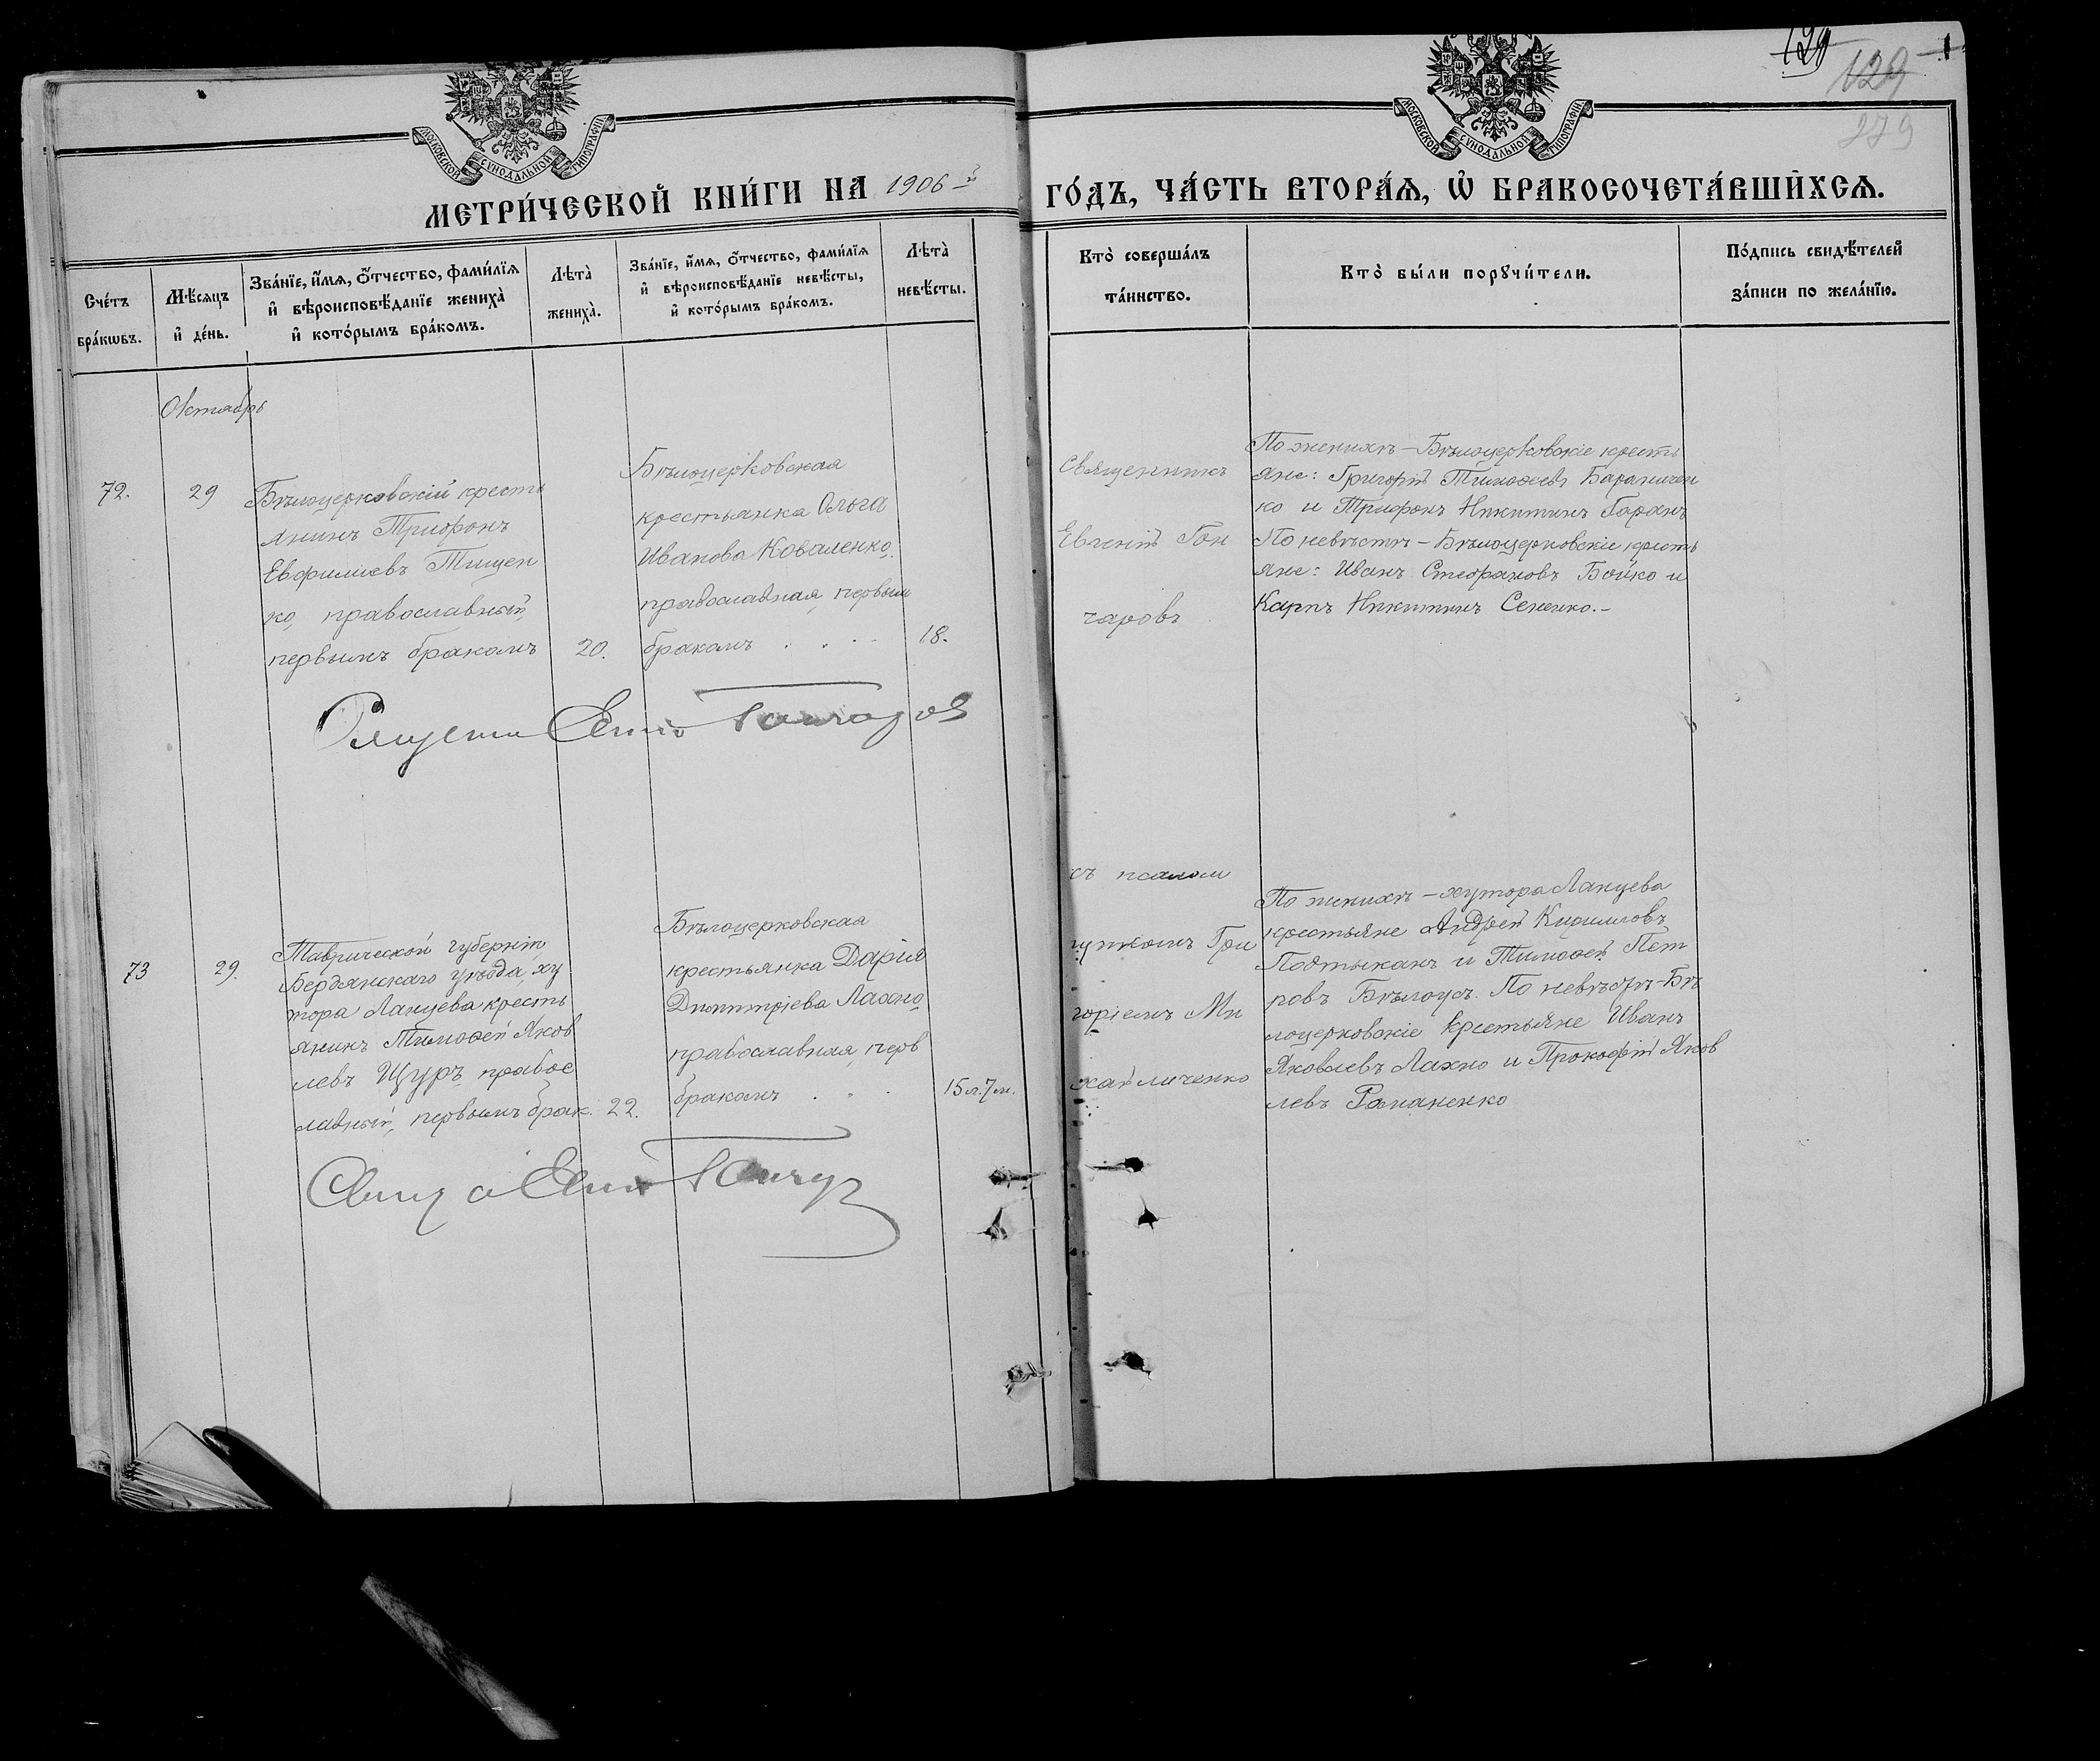 129
129
279
МОСКОВСКОЙ СУНОДАЛЬНОЙ ТИПОГРАФІИ
МОСКОВСКОЙ СУНОДАЛЬНОЙ ТИПОГРАФІИ
МЕТРИ́ЧЕСКОЙ КНИ́ГИ НА 1906-й ГО́ДЪ, ЧА́СТЬ ВТОРА́Я, Ѡ҆ БРАКОСОЧЕТА́ВШИХСЯ.
Сче́тъ
бра́кѡвъ.
Мѣ́сяцъ
и҆ де́нь.
Зва́нїе, и҆́мя, ѻ҆́тчество, фами́лїя
и҆ вѣроисповѣ́данїе жениха̀
и҆ кото́рымъ бра́комъ.
Лѣта̀
жениха̀.
Зва́нїе, и҆́мя, ѻ҆́тчество, фами́лїя
и҆ вѣроисповѣ́данїе невѣ́сты,
и҆ кото́рымъ бра́комъ.
Лѣта̀
невѣ́сты.
Кто̀ соверша́лъ
та́инство.
Кто̀ бы́ли порꙋчи́тели.
По́дпись свидѣ́телей
за́писи по жела́нїю.
Октябрь
72.
29
Бѣлоцерковскій кресть
янинъ Трифонъ
Евфиміевъ Тищен
ко, православный,
первымъ бракомъ
20.
Бѣлоцерковская
крестьянка Ольга
Иванова Коваленко,
православная, первым
бракомъ . . .
18.
Священникъ
Евгеній Гон
чаровъ
По женихѣ – Бѣлоцерковскіе кресть
яне: Григорій Тимоѳеевъ Бараничен
ко и Трифонъ Никитинъ Баранъ
По невѣстѣ – Бѣлоцерковскіе кресть
яне: Иванъ Стефановъ Бойко и
Карпъ Никитинъ Сененко.–
73
29.
Таврической губерніи,
Бердянскаго уѣзда, ху
тора Ланцева кресть
янинъ Тимоѳей Яков
левъ Щуръ, правос
лавный, первымъ брак.
22.
Бѣлоцерковская
крестьянка Дарія
Димитріева Лахно,
православная, перв
бракомъ . . .
15 л. 7 м.
съ псалом
щикомъ Гри
горіемъ Ми
хайличенко
По женихѣ – хутора Ланцева
крестьяне Андрей Кирилловъ
Подтыканъ и Тимоѳей Пет
ровъ Бѣлоусъ. По невѣстѣ – Бѣ
лоцерковскіе крестьяне Иванъ
Яковлевъ Лахно и Прокофій Яков
левъ Романенко